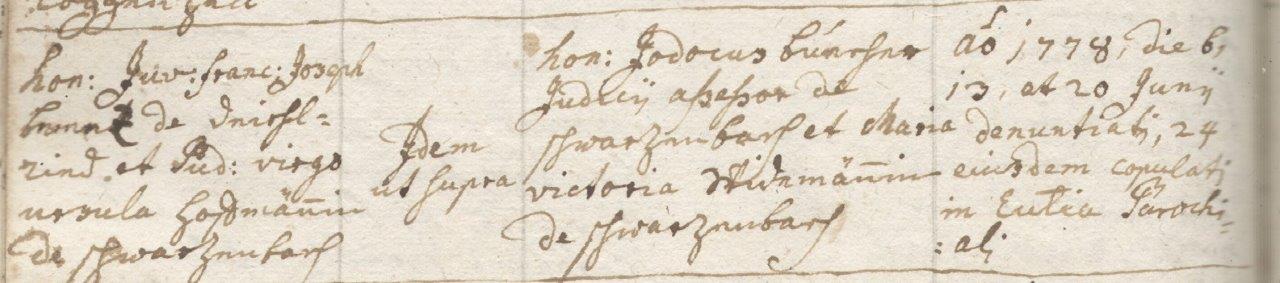 hon: Juv: Franc: Joseph
brunnz de
rind. et Pud: virgo
ursula Hoffmänin
de schwarzenbach
Idem
ut supra
hon: Jodocus
Judicij assessor de
schwarzenbach et Maria
victoria Widnmänin
de schwarzenbach
Aō 1778, die 6,
13, et 20 Junij
denuntiatj, 24
eiusdem copulatj
in Parochi=
:alj